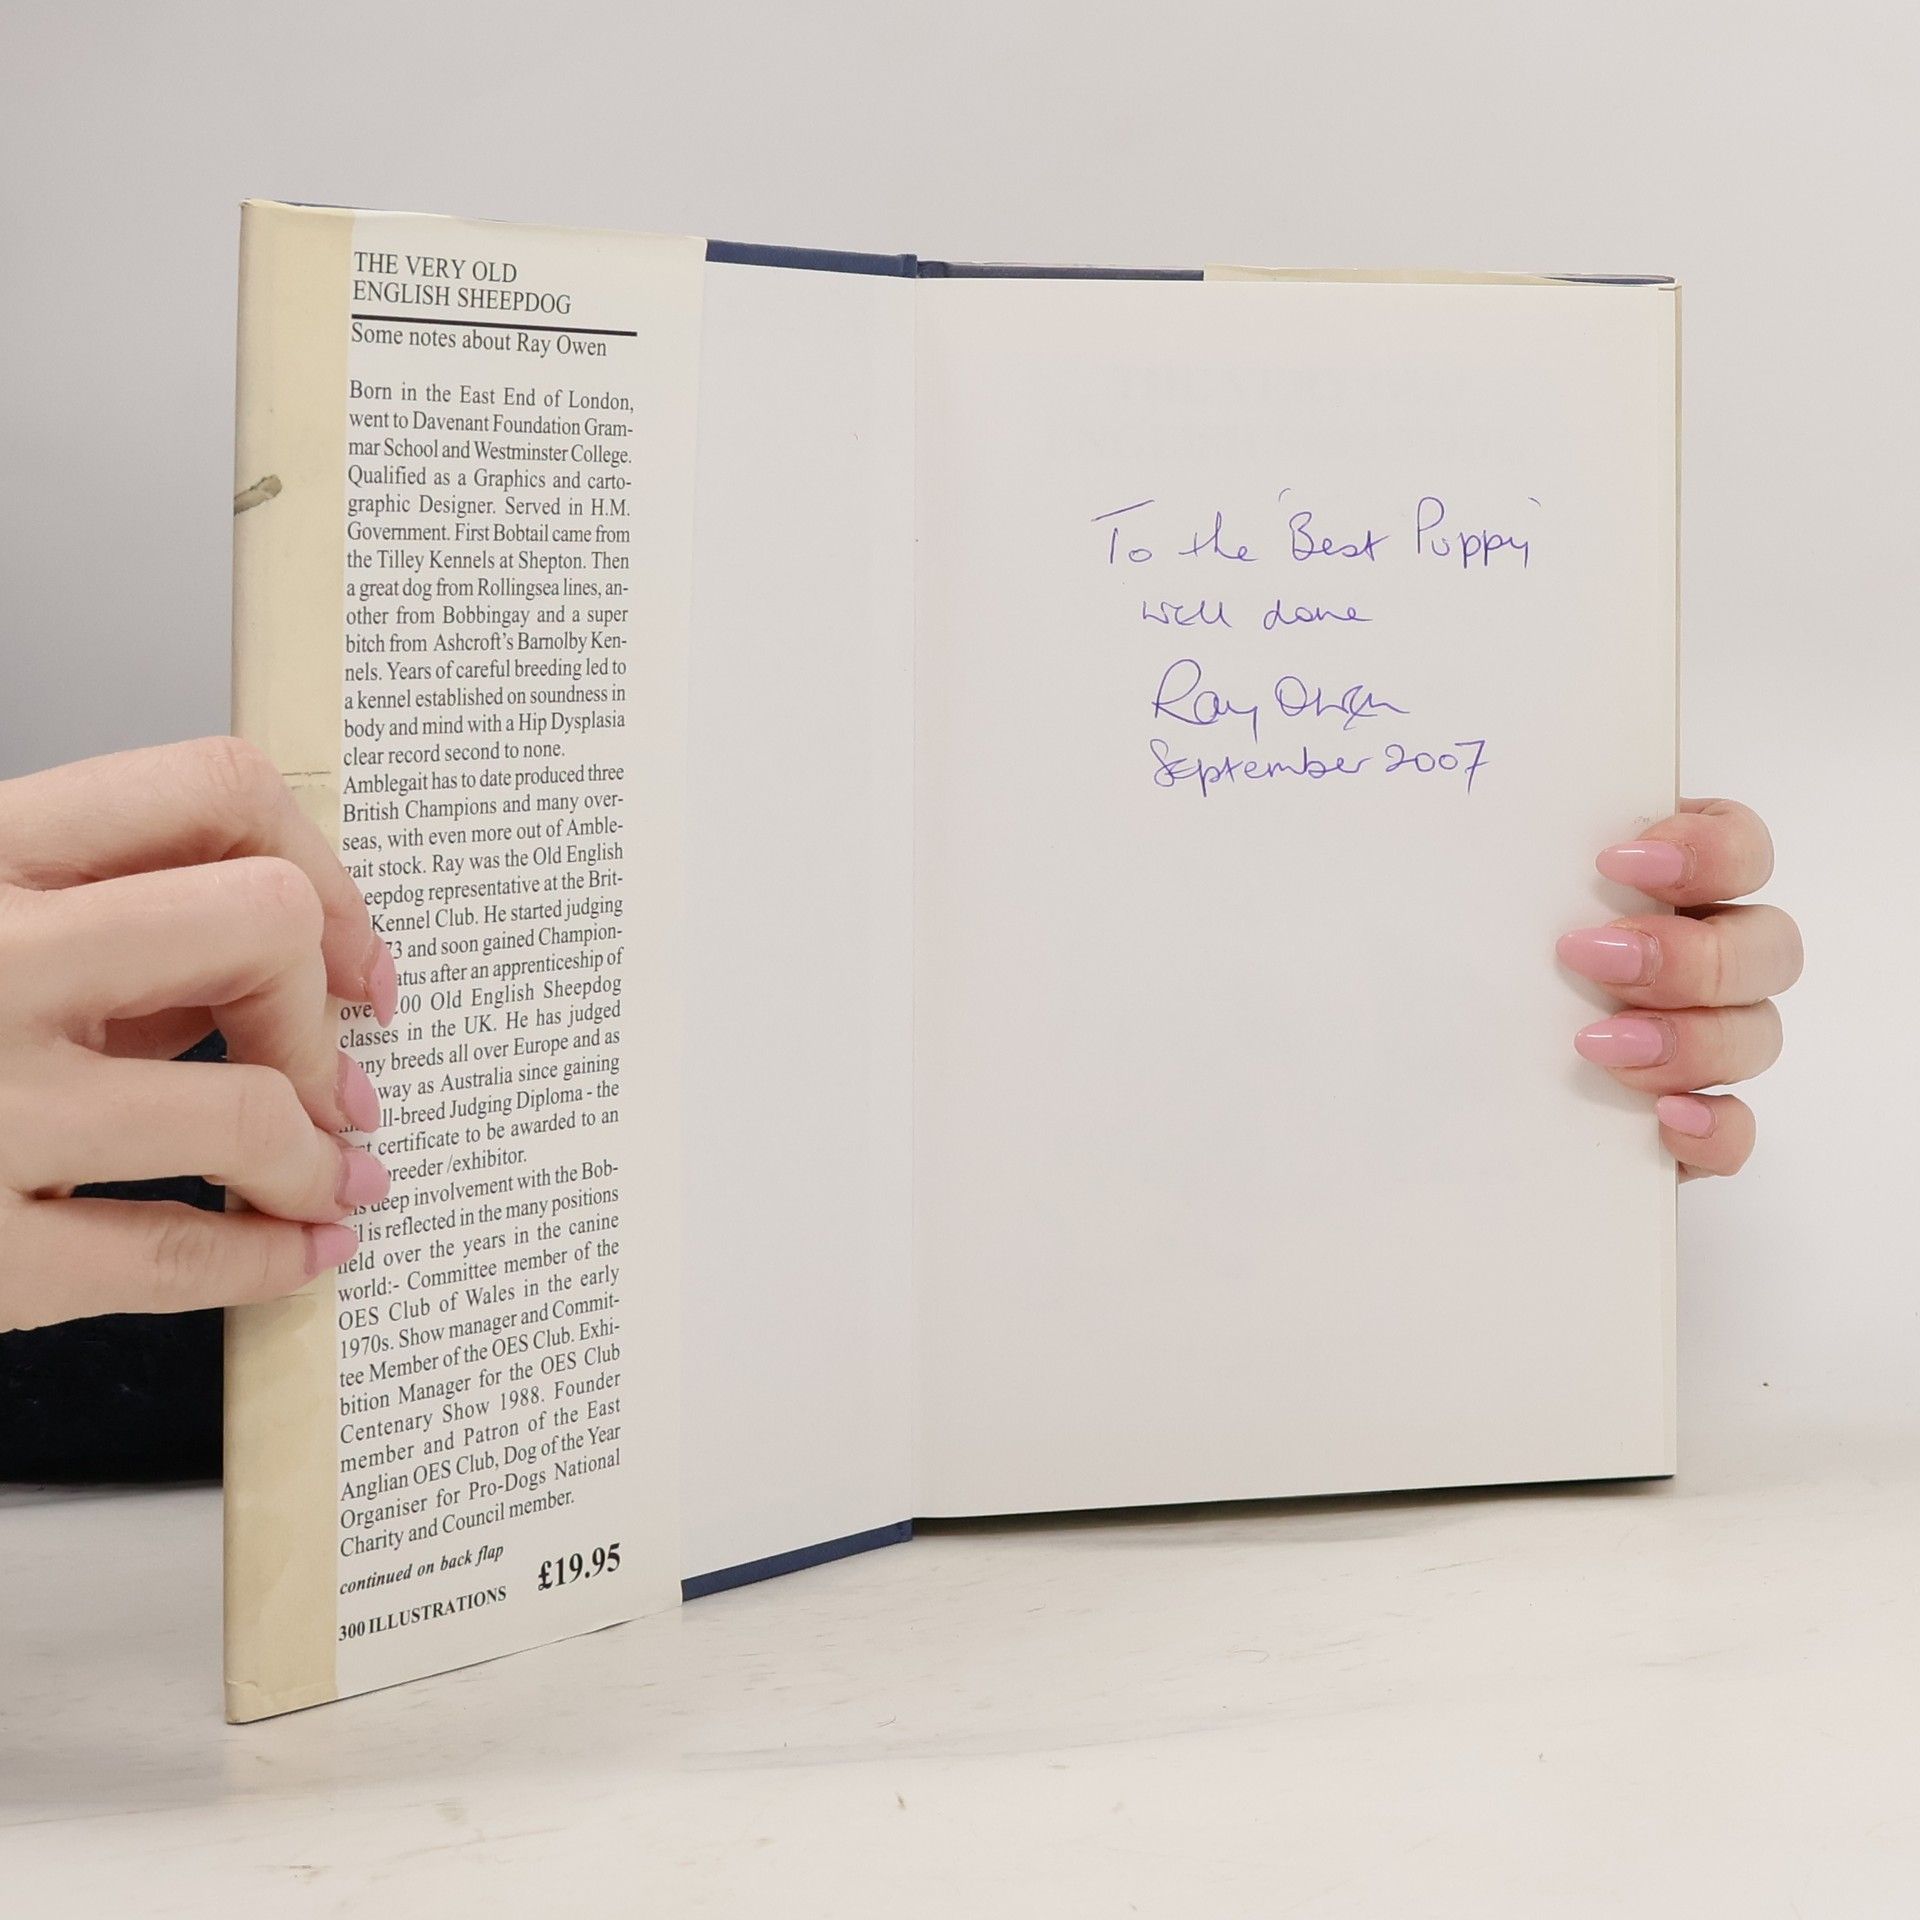 THE VERY OLD
ENGLISH SHEEPDOG
Some notes about Ray Owen
Born in the East End of London,
went to Davenant Foundation Gram-
mar School and Westminster College.
Qualified as a Graphics and carto-
graphic Designer. Served in H.M.
Government. First Bobtail came from
the Tilley Kennels at Shepton. Then
a great dog from Rollingsea lines, an-
other from Bobbingay and a super
bitch from Ashcroft's Barnolby Ken-
nels. Years of careful breeding led to
a kennel established on soundness in
body and mind with a Hip Dysplasia
clear record second to none.
Amblegait has to date produced three
British Champions and many over-
seas, with even more out of Amble-
gait stock. Ray was the Old English
eepdog representative at the Brit-
Kennel Club. He started judging
73 and soon gained Champion-
atus after an apprenticeship of
00 Old English Sheepdog
classes in the UK. He has judged
any breeds all over Europe and as
way as Australia since gaining
ll-breed Judging Diploma - the
certificate to be awarded to an
breeder /exhibitor.
deep involvement with the Bob-
il is reflected in the many positions
held over the years in the canine
world:- Committee member of the
OES Club of Wales in the early
1970s. Show manager and Commit-
tee Member of the OES Club. Exhi-
bition Manager for the OES Club
Centenary Show 1988. Founder
member and Patron of the East
Anglian OES Club, Dog of the Year
Organiser for Pro-Dogs National
Charity and Council member.
continued on back flap
300 ILLUSTRATIONS £19.95
To the 'Best Puppy'
well done
Ray Owen
September 2007